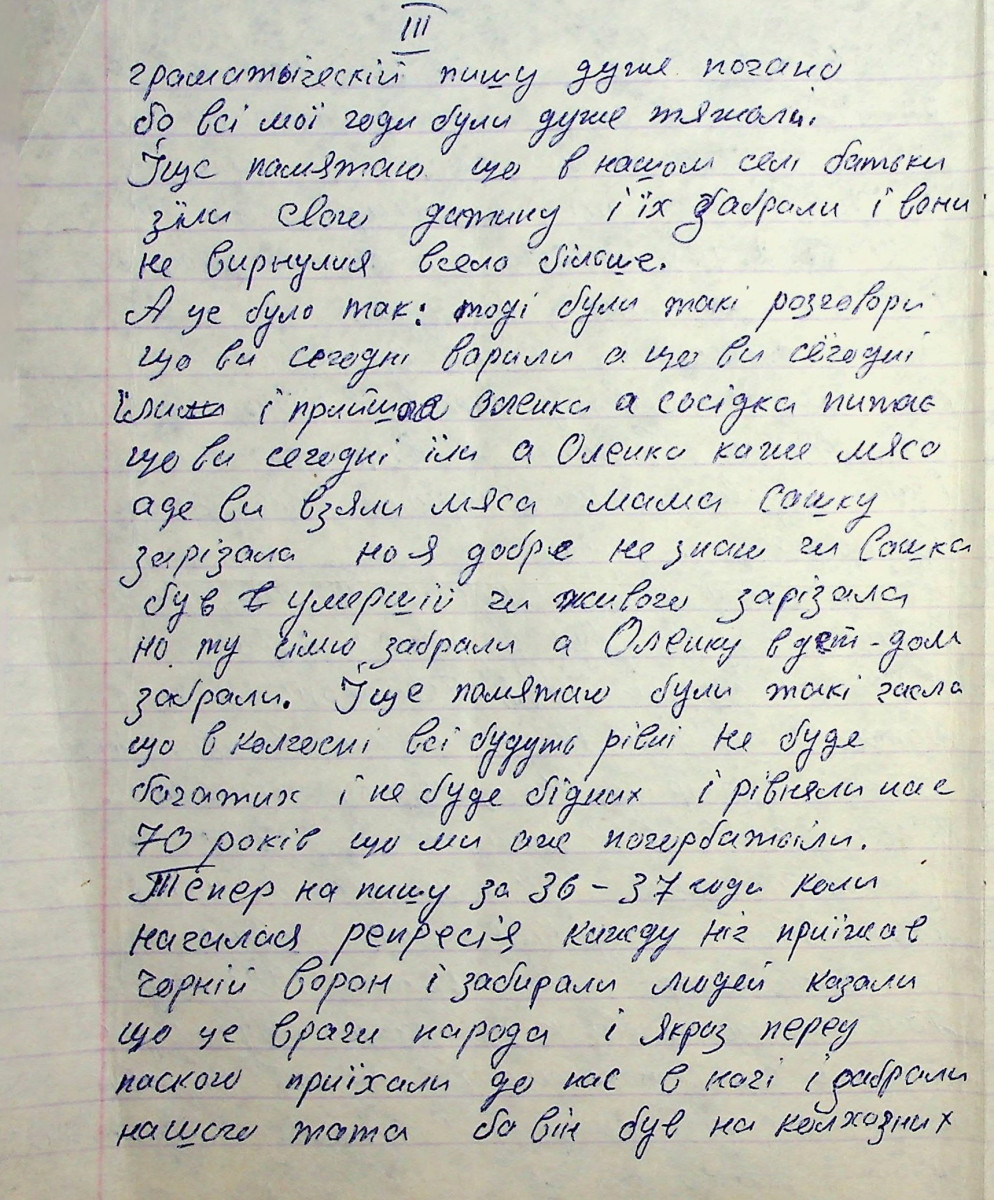 III
граматыческій пишу дуже погано
бо всі мої годи були дуже тяжолиі
Іще памятаю що в нашом селі батьки
зїли свого дитину і їх забрали і вони
не вирнулися всело більше.
А це було так: тоді були такі розговори
що ви сегодні варили а що ви сегодні
їли і прийшла Оленка а сосідка питає
що ви сегодні їли а Оленка каже мясо
аде ви взяли мяса мама Сашку
зарізала но я добре не знаю чи Сашка
був умершій чи живого зарізала
но ту сімю забрали а Оленку в дет-дом
забрали. Іще памятаю були такі гасла
що в колгоспі всі будуть рівні не буде
богатих і не буде бідних і рівняли нас
70 років що ми аже погорбатыіли.
Тепер на пишу за 36-37 годи коли
началася репресія кажду ніч приїжав
чорній ворон і забирали людей казали
що це враги народа і якраз перед
паскою приїхали до нас в ночі і забрали
нашого тата бо він був на колхозних